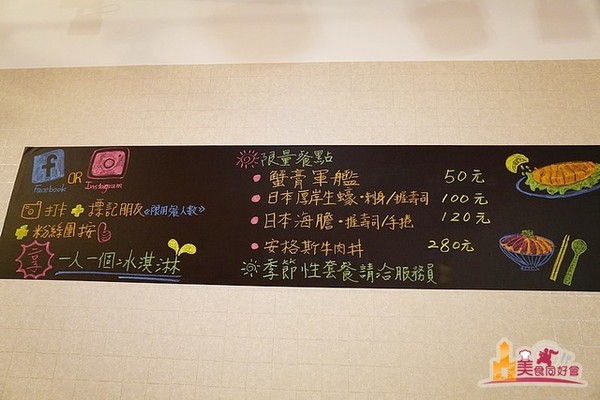 Facebook
OR
Instagram
打卡+標記朋友《限用餐人數》
+粉絲團按
享 一人一個冰淇淋
限量餐點
蟹膏軍艦 50元
日本厚岸生蠔·刺身/握壽司 100元
日本海膽·握壽司/手捲 120元
安格斯牛肉丼 280元
季節性套餐請洽服務員
美食同好會